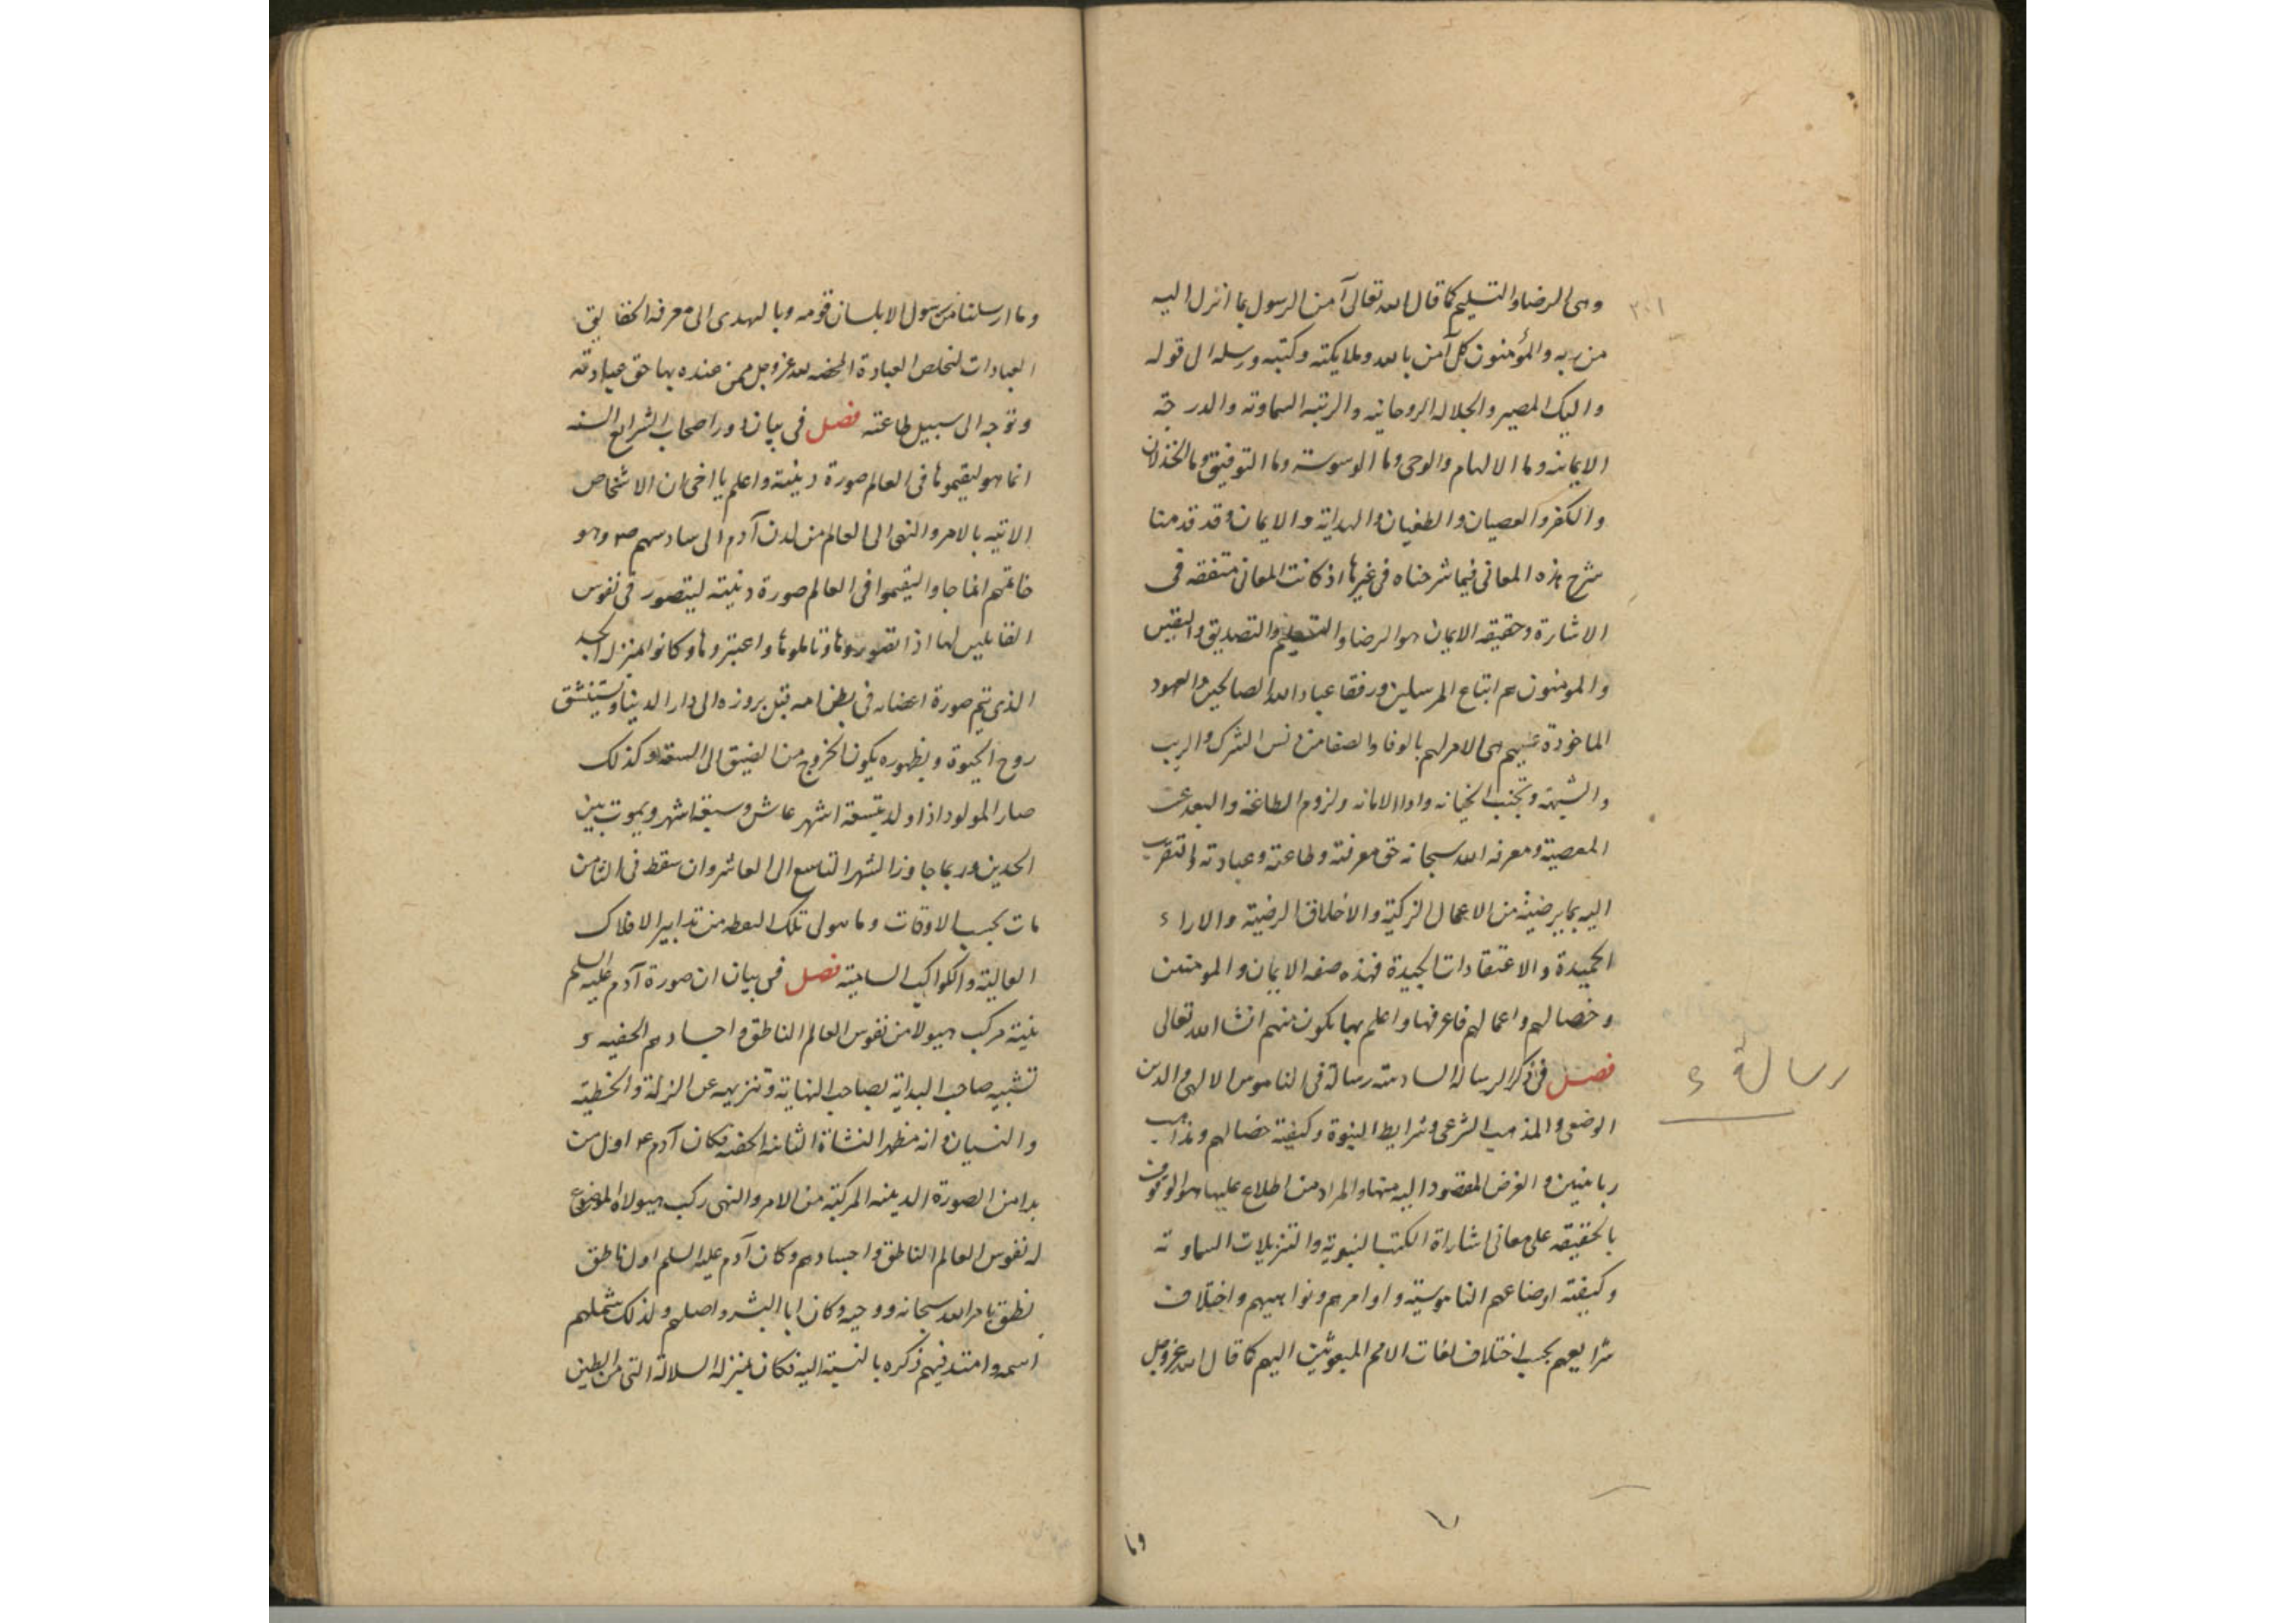 ٣٠١
وهى الرضا والتسليم كما قال الله تعالى آمن الرسول بما انزل اليه
من ربه والمؤمنون كل آمن بالله وملايكته وكتبه ورسله الى قوله
واليك المصير والجلاله الروحانيه والرتبه السماوته والدرجة
الايمانيه وما الالهام والوحى وما الوسوسة وما التوفيق وما الخذلان
والكفر والعصيان والطغيان والهداية والايمان وقد قدمنا
شرح هذه المعانى فيما شرحناه فى غيرها اذ كانت المعانى متفقه فى
الاشارة وحقيقه الايمان هو الرضا والتسليم والتصديق واليقين
والمومنون هم اتباع المرسلين ورفقا عباد الله الصالحين والعهود
الماخوذة عليهم هى الامر لهم بالوفا والصفا من دنس الشرك والريب
والشبهة وتجنب الخيانه واداا الامانه ولزوم الطاعة والبعد عن
المعصية ومعرفه الله سبحانه حق معرفته وطاعته وعبادته والتقرب
اليه بما يرضيه من الاعمال الزكية والاخلاق الرضية والاراء
الحميدة والاعتقادات الجيدة فهذه صفه الايمان والمومنين
وخصالهم واعمالهم فاعرفها واعلم بها تكون منهم انشا الله تعالى
رسالة ء
فصل فى ذكر الرسالة السادسة رسالة فى الناموس الالهى والدين
الوضعى والمذهب الشرعى وشرايط النبوة وكيفية خصالهم ومذاهب
ربانيين والغرض المقصود اليه منها والمراد من اطلاع عليها هو الوقوف
بالحقيقه على معانى اشاراة الكتب النبوية والتنزيلات السماوته
وكيفية اوضاعهم الناموسية واوامرهم ونواهيهم واختلاف
شرايعهم بحسب اختلاف لغات الامم المبعوثين اليهم كما قال الله عز وجل
وما
وما ارسلنا من رسول الا بلسان قومه وبالهدى الى معرفة الحقايق
العبادات لتخلص العبادة المحضه لله عز وجل ممن عنده بها حق عبادته
وتوجه الى سبيل طاعته فصل فى بيان دور اصحاب الشرايع السته
انما هو ليقيموها فى العالم صورة دينية واعلم يا اخى ان الاشخاص
الاتيه بالامر والنهى الى العالم من لدن آدم الى سادسهم ص وهو
خاتمهم انما جاوا ليقيموا فى العالم صورة دينية ليتصور فى نفوس
القابلين لها اذا تصوروها وتاملوها واعتبروها وكانوا بمنزلة الجسد
الذى تتم صورة اعضائه فى بطن امه قبل بروزه الى دار الدنيا ويستنشق
روح الحيوة وبظهوره يكون الخروج من الضيق الى السعة وكذلك
صار المولود اذا ولد بتسعة اشهر عاش وسبعة اشهر ويموت بين
الحدين وربما جاوز الشهر التاسع الى العاشر وان سقط فى الثامن
مات بحسب الاوقات وما هو لى تلك من تدابير الافلاك
العالية والكواكب السامية فصل فى بيان ان صورة آدم عليه السلم
بنية مركب هيولا من نفوس العالم الناطق واجسادهم الخفيه و
تشبيه صاحب البداية بصاحب النهاية وتنزيهه عن الزلة والخطية
والنسيان وانه مظهر النشاة الثانيه الخفيه فكان آدم ع اول من
بدا من الصورة الدينيه المركبة من الامر والنهى ركب هيولاه الموضوع
له نفوس العالم الناطق واجسادهم وكان آدم عليه السلم اول ناطق
نطق بامر الله سبحانه ووحيه وكان ابا البشر واصلهم ولذلك شملهم
اسمه وامتد فيهم ذكره بالنسبة اليه فكان بمنزلة السلالة التى من الطين